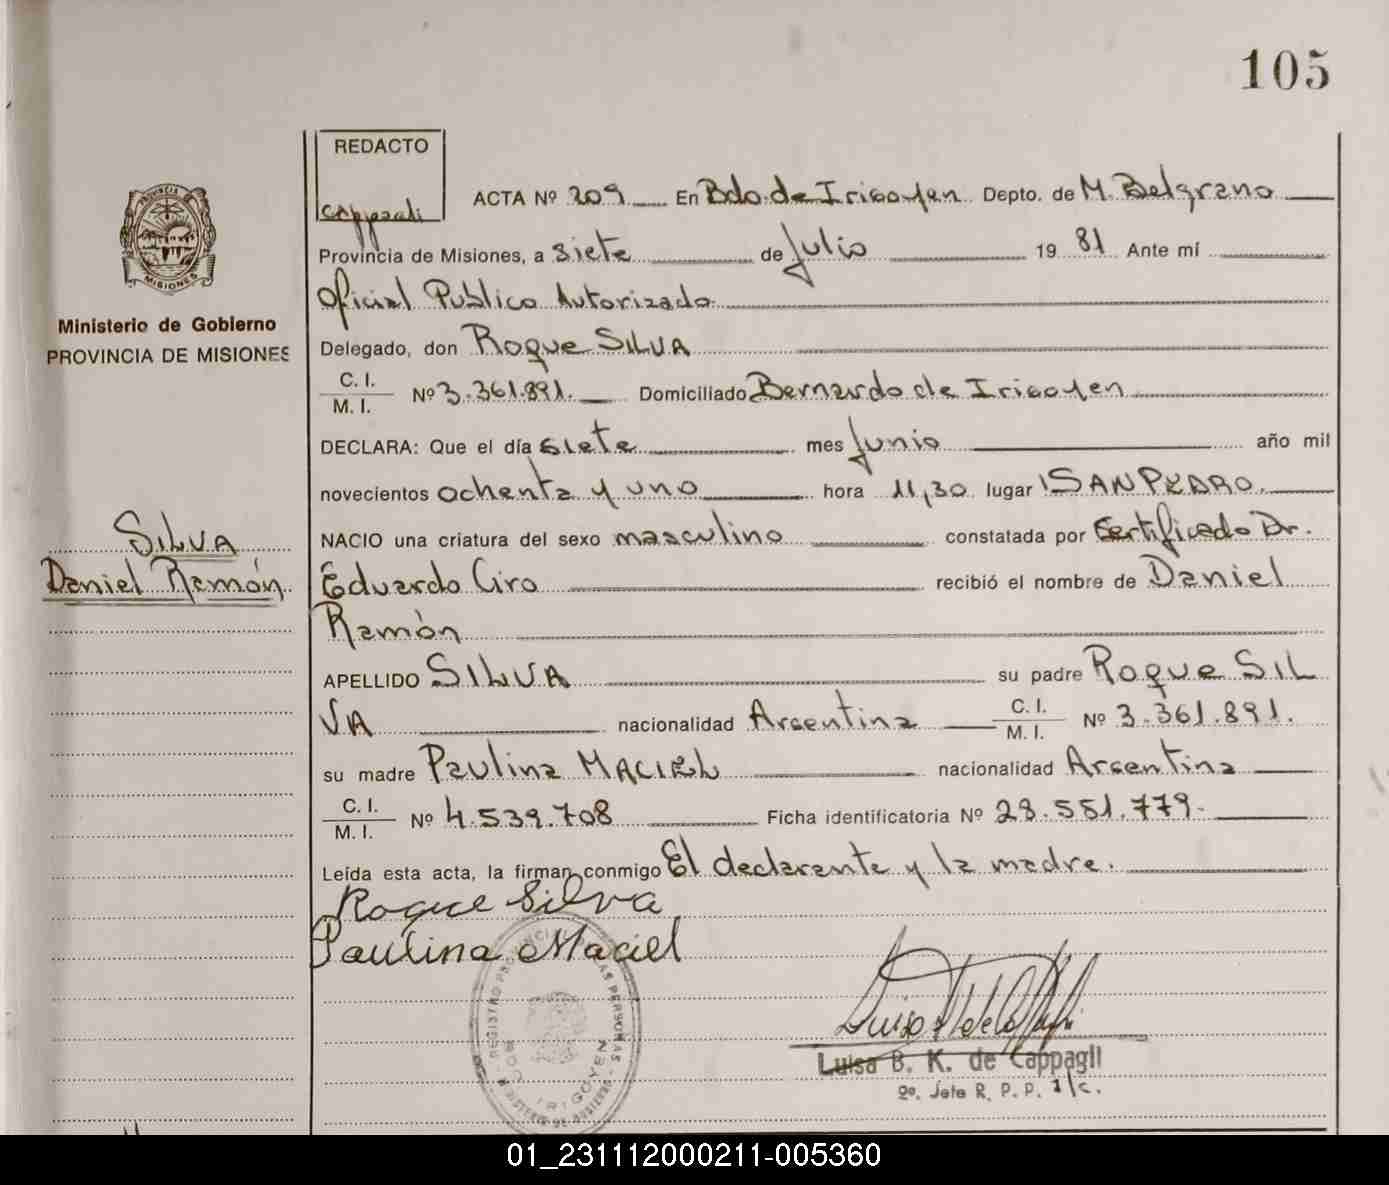 105
REDACTO
Cappagli
PROVINCIA
MISIONES
Ministerio de Gobierno
PROVINCIA DE MISIONES
ACTA Nº 209 En Bdo. de Irigoyen Depto. de M. Belgrano
Provincia de Misiones, a siete de Julio 1981 Ante mí
Oficial Publico Autorizado
Delegado, don Roque SILVA
C. I.
M. I. Nº 3.361.891. Domiciliado Bernardo de Irigoyen
DECLARA: Que el día siete mes Junio año mil
novecientos ochenta y uno hora 11,30 lugar SAN PEDRO.
NACIO una criatura del sexo masculino constatada por Certificado Dr.
Eduardo Ciro recibió el nombre de Daniel
Ramón
SILVA
Daniel Ramón
APELLIDO SILVA su padre Roque SIL
VA nacionalidad Argentina C. I.
M. I. Nº 3.361.891.
su madre Paulina MACIEL nacionalidad Argentina
C. I.
M. I. Nº 4.539.708 Ficha identificatoria Nº 28.551.779.
Leída esta acta, la firman conmigo El declarante y la madre.
Roque Silva
Paulina Maciel
REGISTRO PROVINCIAL DE LAS PERSONAS
BDO. DE IRIGOYEN
MINISTERIO DE GOBIERNO
Luisa B. K. de Cappagli
2º. Jefe R. P. P. 1/c.
01_231112000211-005360